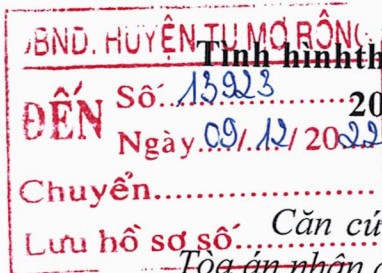 UBND. HUYỆN TU MƠ RÔNG
Tình hình th
ĐẾN Số: 13923
20
Ngày 09/12/2022
Chuyển
Căn cứ
Lưu hồ sơ số
Tòa án nhân d